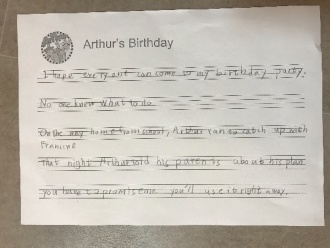 Arthur's Birthday
I hope every one can come to my birthday party.
No one knew what to do
On the way home from school, Arthur ran to catch up with
Francine
That night Arthur told his parents about his plan
you have to promise me you'll use it right away.